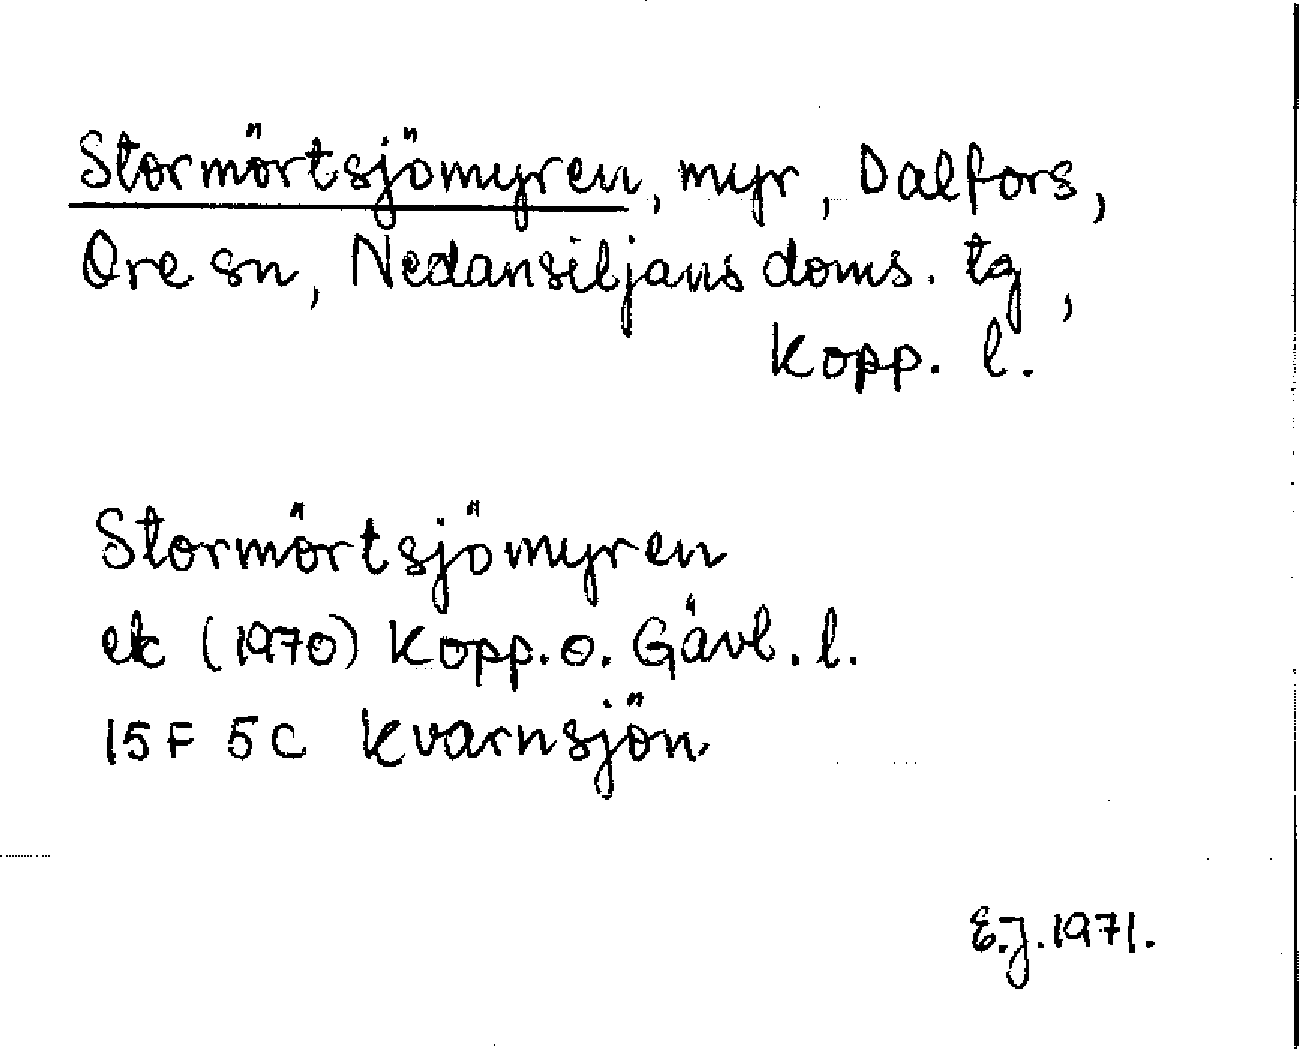 Stormörtsjömyren, myr, Dalfors,
Ore sn, Nedansiljans doms. tg,
Kopp. l.
Stormörtsjömyren
ek (1970) Kopp. o. Gävl. l.
15 F 5 C Kvarnsjön
E.J. 1971.